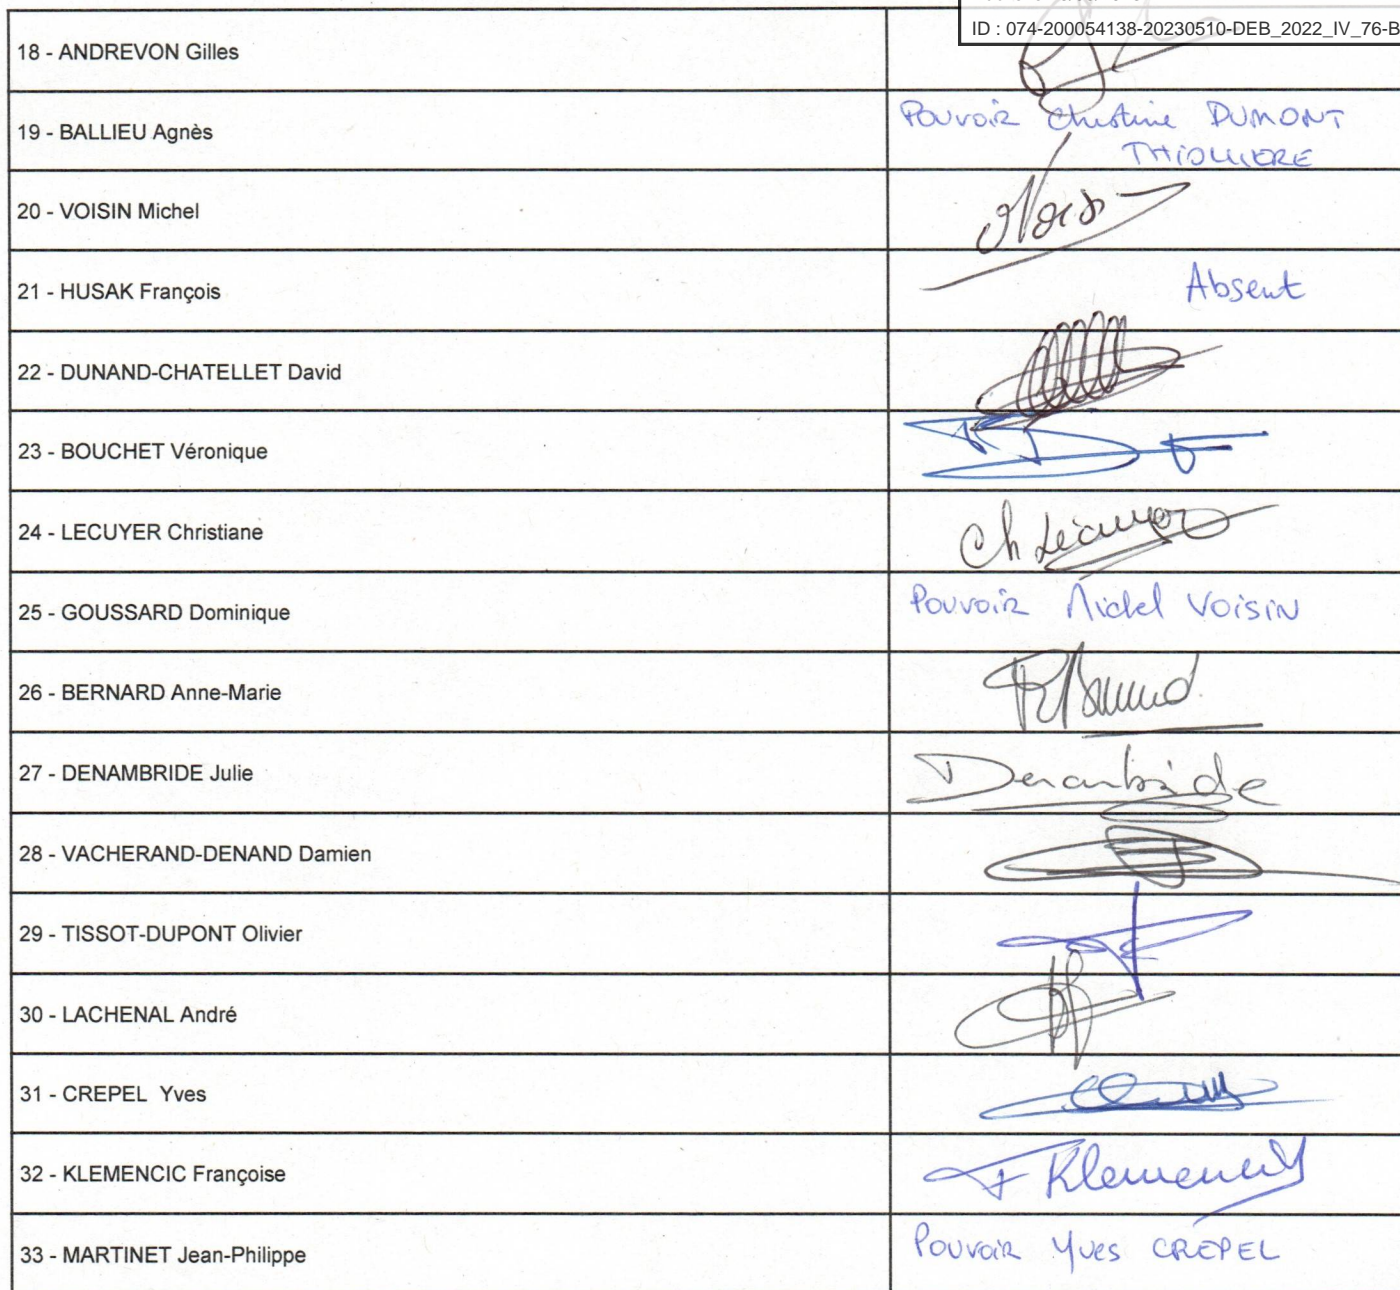 ID : 074-200054138-20230510-DEB_2022_IV_76-B
18 - ANDREVON Gilles
19 - BALLIEU Agnès
Pouvoir Christine DUMONT
THIOLLIERE
20 - VOISIN Michel
21 - HUSAK François
Absent
22 - DUNAND-CHATELLET David
23 - BOUCHET Véronique
24 - LECUYER Christiane
Ch Lécuyer
25 - GOUSSARD Dominique
Pouvoir Michel VOISIN
26 - BERNARD Anne-Marie
27 - DENAMBRIDE Julie
Denambride
28 - VACHERAND-DENAND Damien
29 - TISSOT-DUPONT Olivier
30 - LACHENAL André
31 - CREPEL Yves
32 - KLEMENCIC Françoise
F Klemencic
33 - MARTINET Jean-Philippe
Pouvoir Yves CREPEL